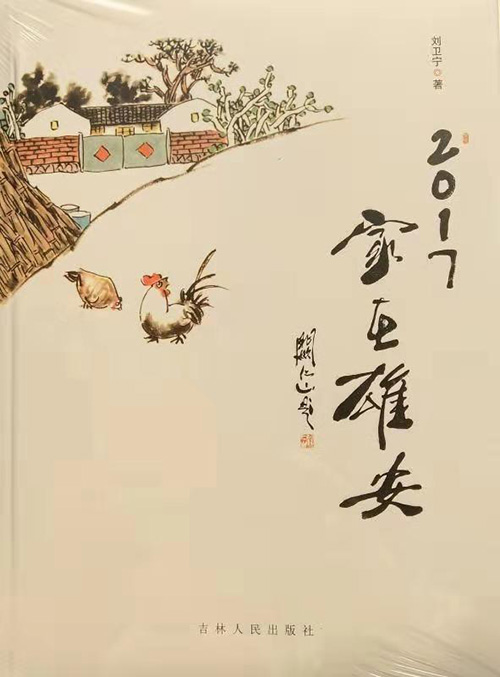 刘卫宁 著
2017
家在雄安
關仁山题
吉林人民出版社